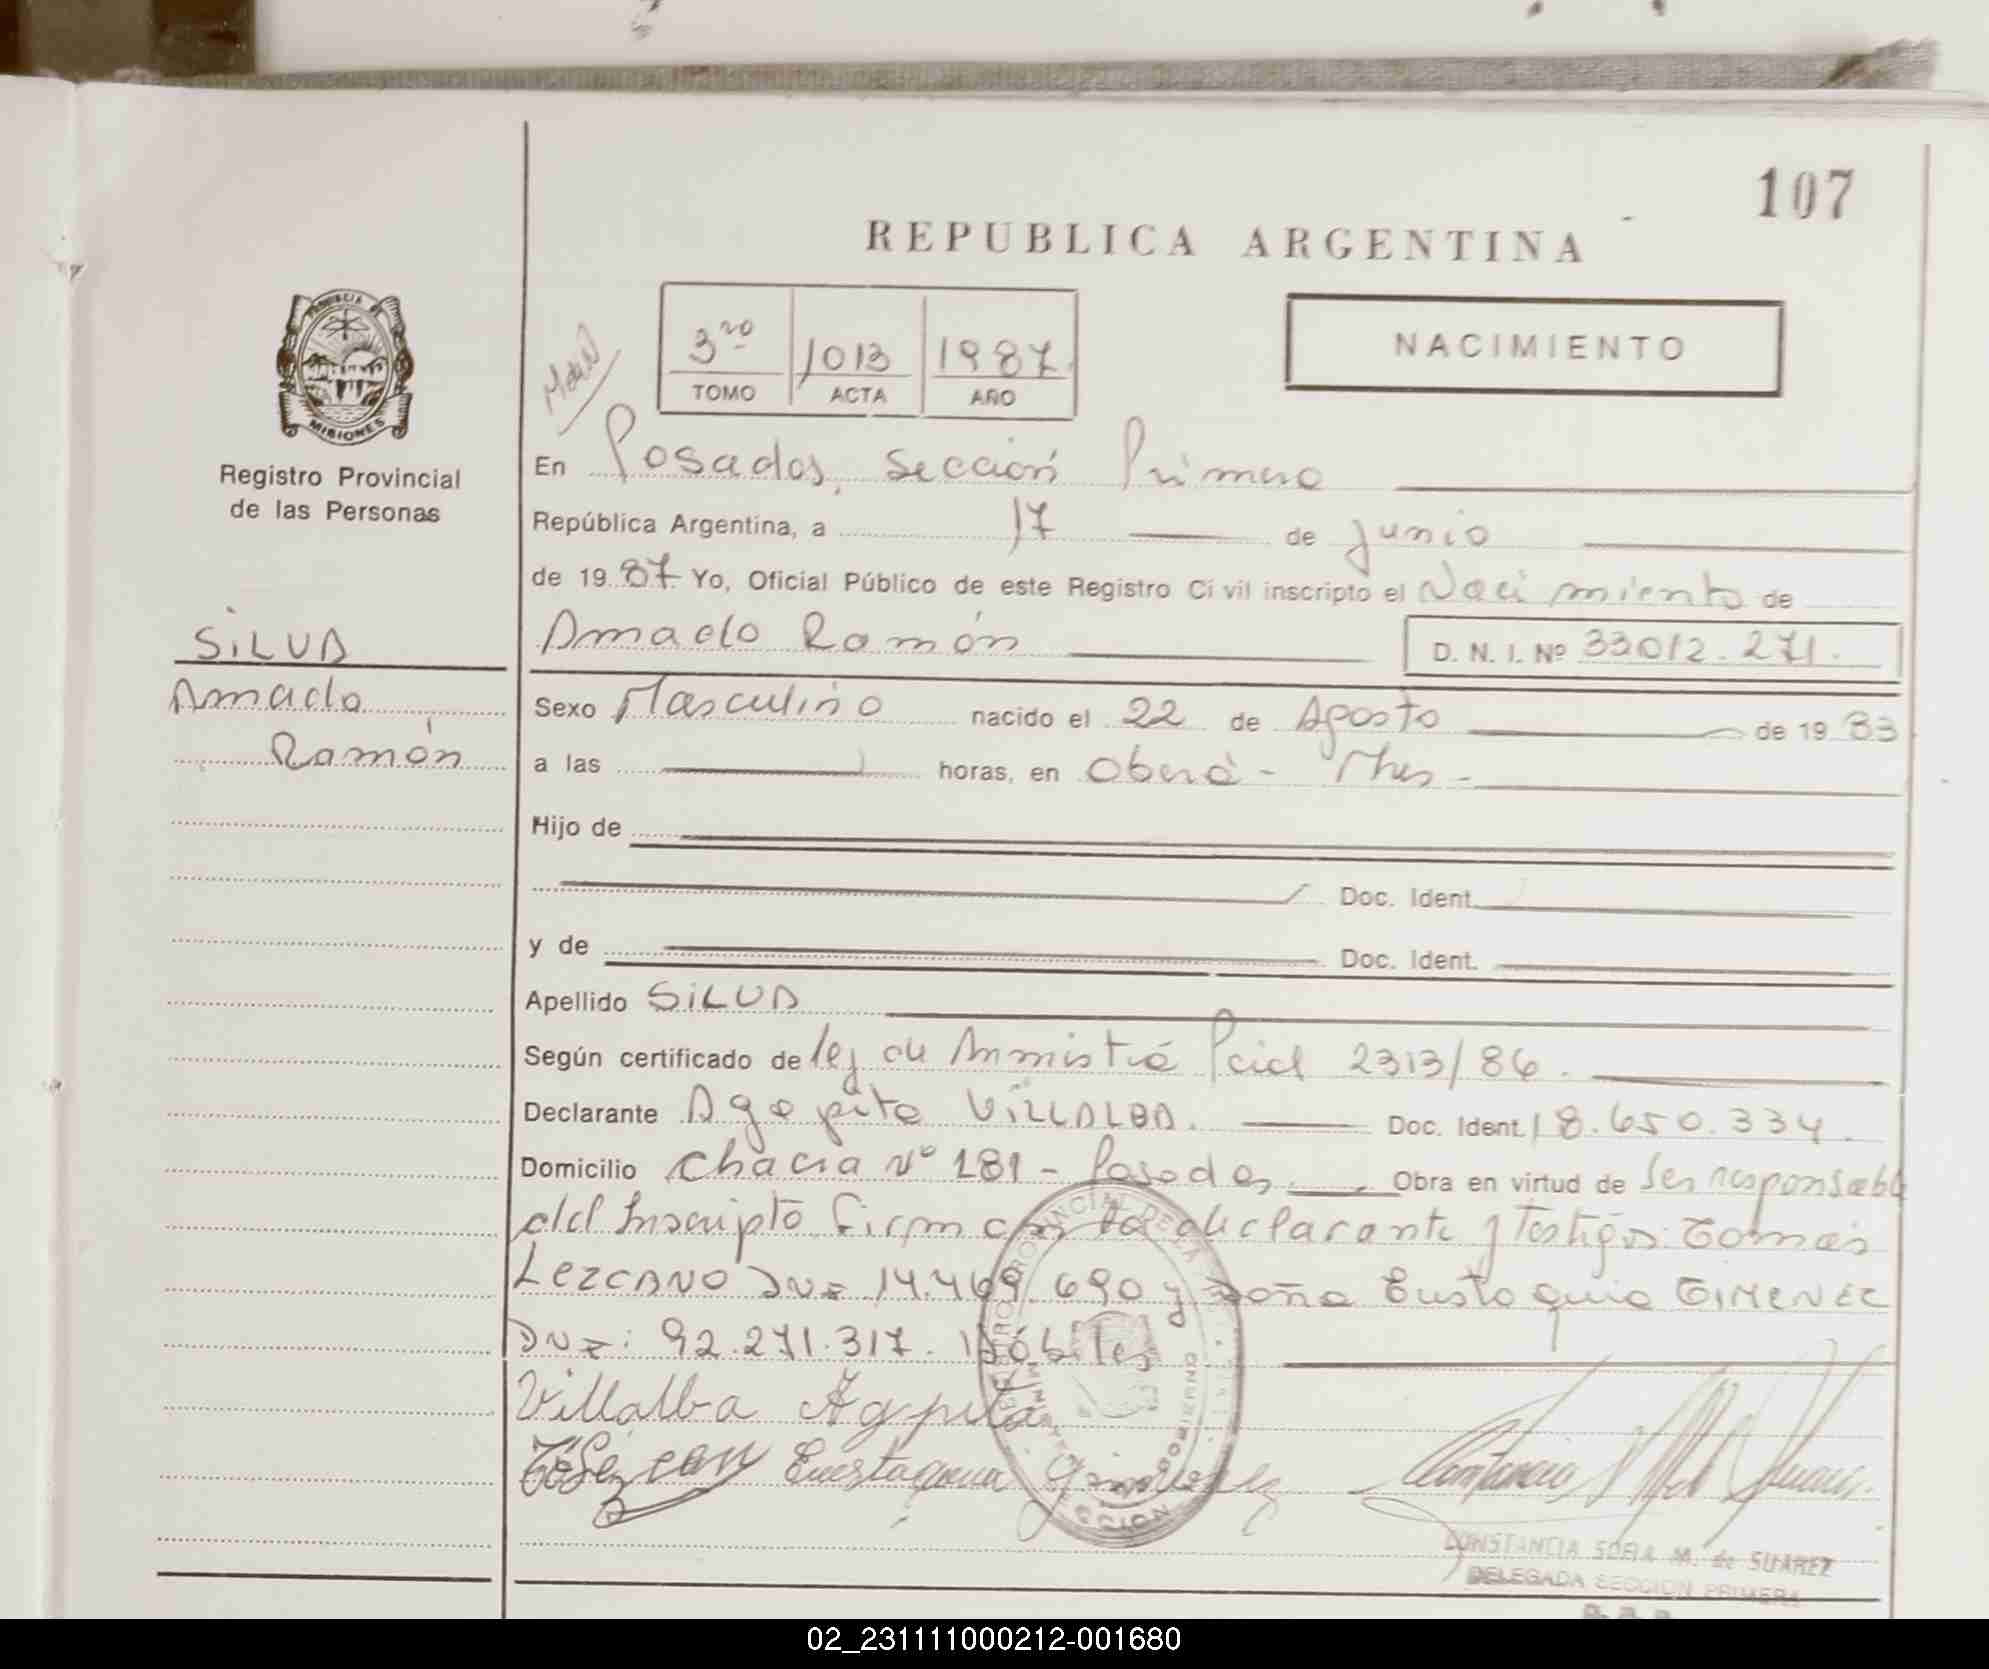 107
REPUBLICA ARGENTINA
NACIMIENTO
3ro 1013 1987
TOMO ACTA AÑO
PROVINCIA
MISIONES
Registro Provincial
de las Personas
En Posadas, Sección Primera
República Argentina, a 17 de Junio
de 1987 Yo, Oficial Público de este Registro Civil inscripto el Nacimiento de
SILVA
Amado Ramón
D. N. I. Nº 33012.271.
Amado
Ramón
Sexo Masculino nacido el 22 de Agosto de 1983
a las horas, en Oberá - Mnes -
Hijo de
Doc. Ident.
y de Doc. Ident.
Apellido SILVA
Según certificado de ley de Amnistía Pcial 2313/86.
Declarante Agapita VILLALBA. Doc. Ident. 18.650.334.
Domicilio Chacra Nº 181 - Posadas Obra en virtud de Ser responsable
del Inscripto firman la declarante y testigos: Tomás
LEZCANO DNI 14.469.690 y Doña Eustaquia GIMENEZ
DNI: 92.271.317. Hábiles
Villalba Agapita
Eustaquia Gimenez
CONSTANCIA SOFIA M. de SUAREZ
DELEGADA SECCION PRIMERA
02_231111000212-001680